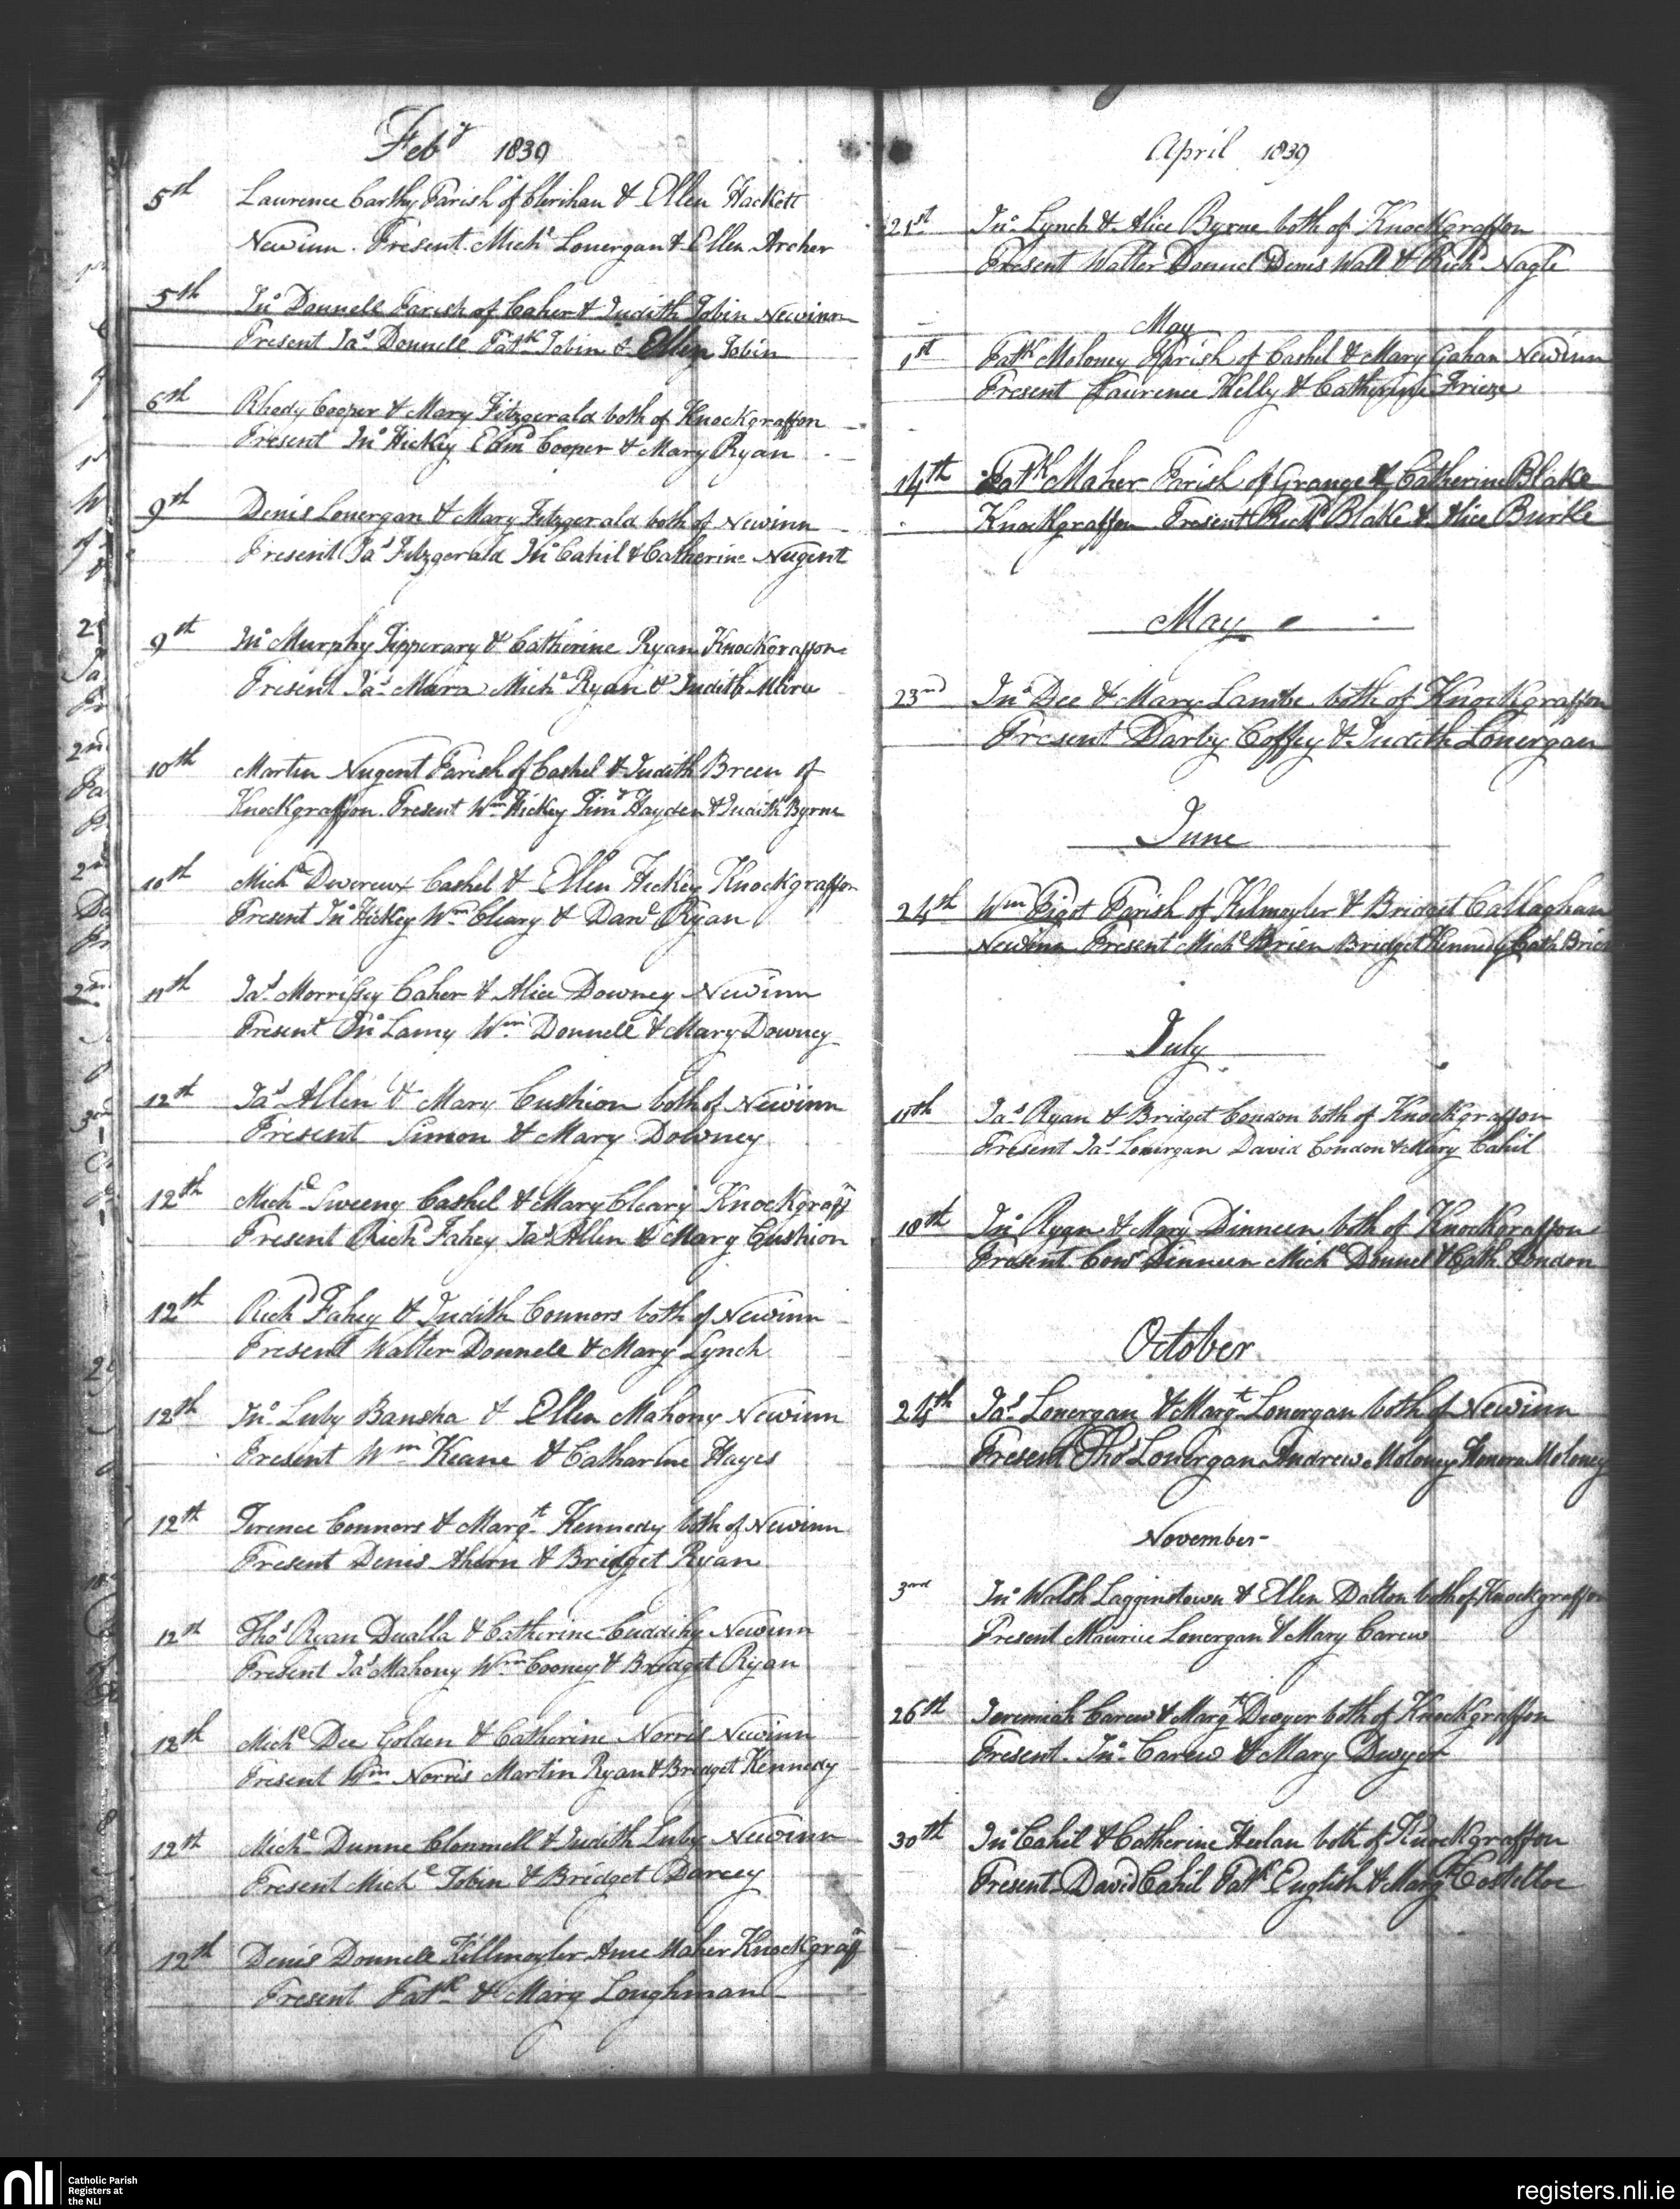 Feby 1839
5th Laurence Carthy Parish of Clerihan & Ellen Hackett
Newinn. Present Michl Lonergan & Ellen Archer
5th Jno Donnell Parish of Caher & Judith Tobin Newinn
Present Jas Donnell Patk Tobin & Ellen Tobin
6th Rhody Cooper & Mary Fitzgerald both of Knockgraffon
Present Jno Hickey Edmd Cooper & Mary Ryan
9th Denis Lonergan & Mary Fitzgerald both of Newinn
Present Jas Fitzgerald Jno Cahil & Catherine Nugent
9th Jno Murphy Tipperary & Catherine Ryan Knockgraffon
Present Jas Mara Michl Ryan & Judith
10th Martin Nugent Parish of Cashel & Judith Breen of
Knockgraffon. Present Wm Hickey Timy Hayden & Judith Byrne
10th Michl Devereux Cashel & Ellen Hickey Knockgraffon
Present Jno Hickey Wm Cleary & Danl Ryan
11th Jas Morrissey Caher & Alice Downey Newinn
Present Jno Lamy Wm Donnell & Mary Downey
12th Jas Allen & Mary Cushion both of Newinn
Present Simon & Mary Downey
12th Michl Sweeny Cashel & Mary Cleary Knockgraff
Present Richd Fahey Jas Allen & Mary Cushion
12th Richd Fahey & Judith Connors both of Newinn
Present Walter Donnell & Mary Lynch
12th Jno Luby Bansha & Ellen Mahony Newinn
Present Wm Keane & Catharine Hayes
12th Terence Connors & Margt Kennedy both of Newinn
Present Denis Ahern & Bridget Ryan
12th Thos Ryan Dualla & Catherine Cuddihy Newinn
Present Jas Mahony Wm Cooney & Bridget Ryan
12th Michl Dee Golden & Catherine Norris Newinn
Present Wm Norris Martin Ryan & Bridget Kennedy
12th Michl Dunne Clonmell & Judith Luby Newinn
Present Michl Tobin & Bridget Darcey
12th Denis Donnell Killmoyler Anne Maher Knockgraff
Present Patk & Mary Loughman
April 1839
21st Jno Lynch & Alice Byrne both of Knockgraffon
Present Walter Donnel Denis Wall & Richd Nagle
May
1st Patk Moloney Parish of Cashel & Mary Gahan Newinn
Present Laurence Kelly & Catherine Frieze
14th Patk Maher Parish of Grange & Catherine Blake
Knockgraffon Present Richd Blake & Alice Burke
May
23nd Jno Dee & Mary Lambe both of Knockgraffon
Present Darby Coffey & Judith Lonergan
June
24th Wm Pigot Parish of Kilmoyler & Bridget Callaghan
Newinn Present Michl Brien Bridget Kennedy Cath Brien
July
11th Jas Ryan & Bridget Condon both of Knockgraffon
Present Jas Lonergan David Condon & Mary Cahil
18th Jno Ryan & Mary Dinneen both of Knockgraffon
Present Cons Dinneen Michl Donnel & Cath Condon
October
24th Jas Lonergan & Margt Lonergan both of Newinn
Present Thos Lonergan Andrew Moloney Honora Moloney
November
3rd Jno Walsh Lagginstown & Ellen Dalton both of Knockgraffon
Present Maurice Lonergan & Mary Carew
26th Jeremiah Carew & Margt Dwyer both of Knockgraffon
Present Jno Carew & Mary Dwyer
30th Jno Cahil & Catherine Heelan both of Knockgraffon
Present David Cahil Patk English & Margt Costelloe
nli Catholic Parish
Registers at
the NLI
registers.nli.ie